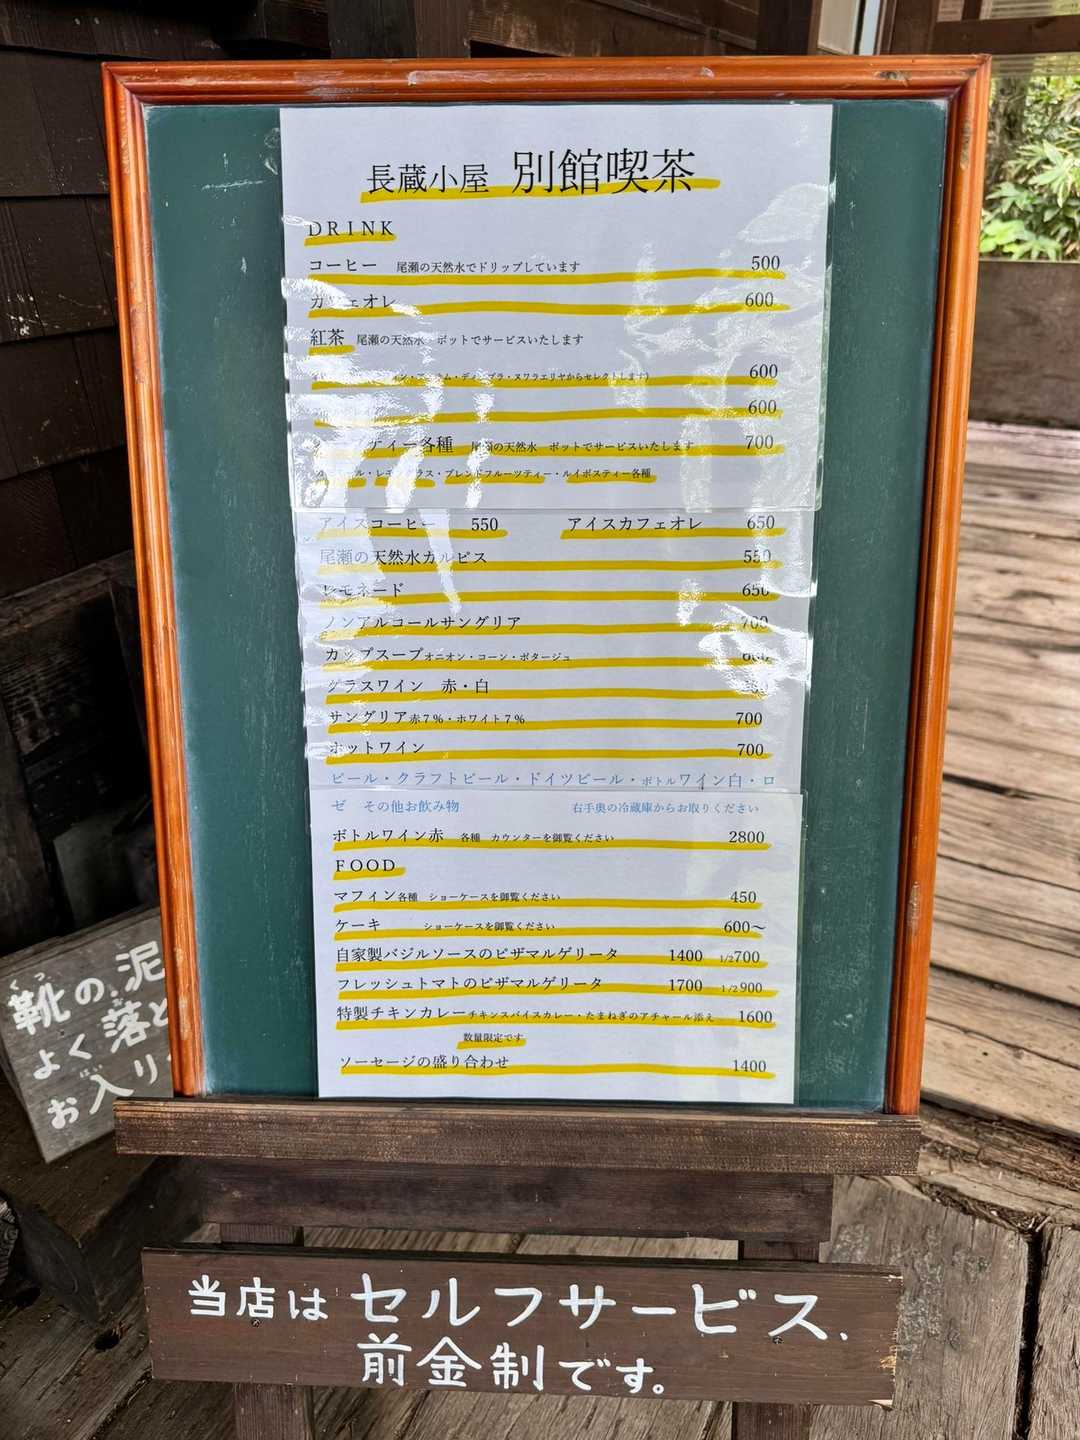 長蔵小屋 別館喫茶
DRINK
コーヒー 尾瀬の天然水でドリップしています 500
カフェオレ 600
紅茶 尾瀬の天然水 ポットでサービスいたします
ディンブラ・ヌワラエリヤからセレクトします) 600
600
ティー各種 尾瀬の天然水 ポットでサービスいたします 700
ブレンドフルーツティー・ルイボスティー各種
アイスコーヒー 550 アイスカフェオレ 650
尾瀬の天然水カルピス 550
レモネード 650
ノンアルコールサングリア 700
カップスープオニオン・コーン・ポタージュ
グラスワイン 赤・白
サングリア赤7%・ホワイト7% 700
ホットワイン 700
ビール・クラフトビール・ドイツビール・ボトルワイン白・ロ
ゼ その他お飲み物 右手奥の冷蔵庫からお取りください
ボトルワイン赤 各種 カウンターを御覧ください 2800
FOOD
マフィン各種 ショーケースを御覧ください 450
ケーキ ショーケースを御覧ください 600〜
自家製バジルソースのピザマルゲリータ 1400 1/2700
フレッシュトマトのピザマルゲリータ 1700 1/2900
特製チキンカレーチキンスパイスカレー・たまねぎのアチャール添え 1600
数量限定です
ソーセージの盛り合わせ 1400
靴の泥
よく落と
お入り
当店はセルフサービス、
前金制です。